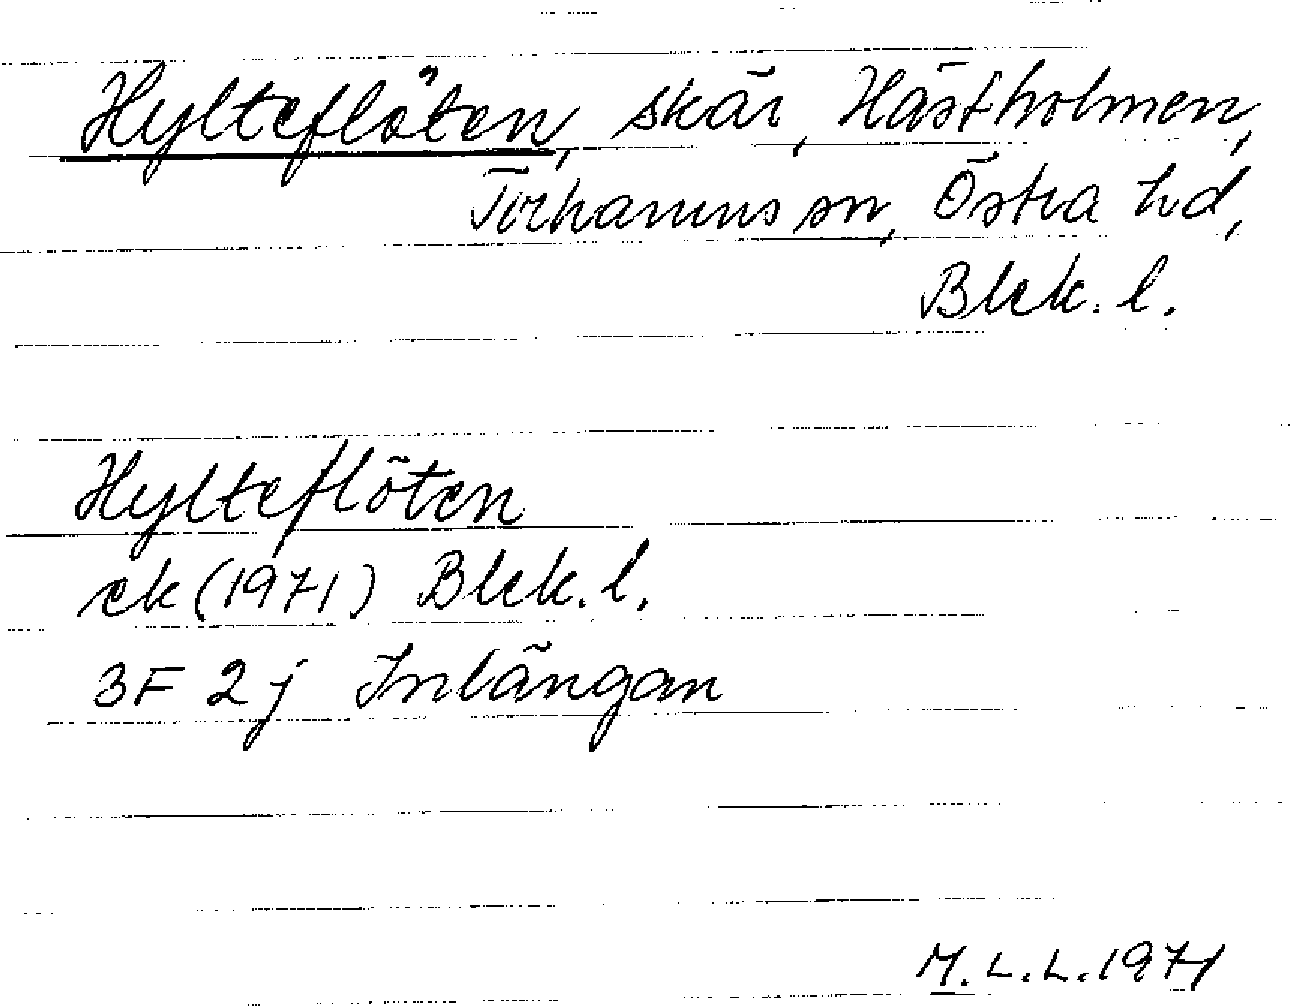 Hylteflöten, skär, Hästholmen,
Torhamns sn, Östra hd,
Blek. l.
Hylteflöten
ek (1971) Blek. l.
3F 2j Inlängan
M.L.L. 1971